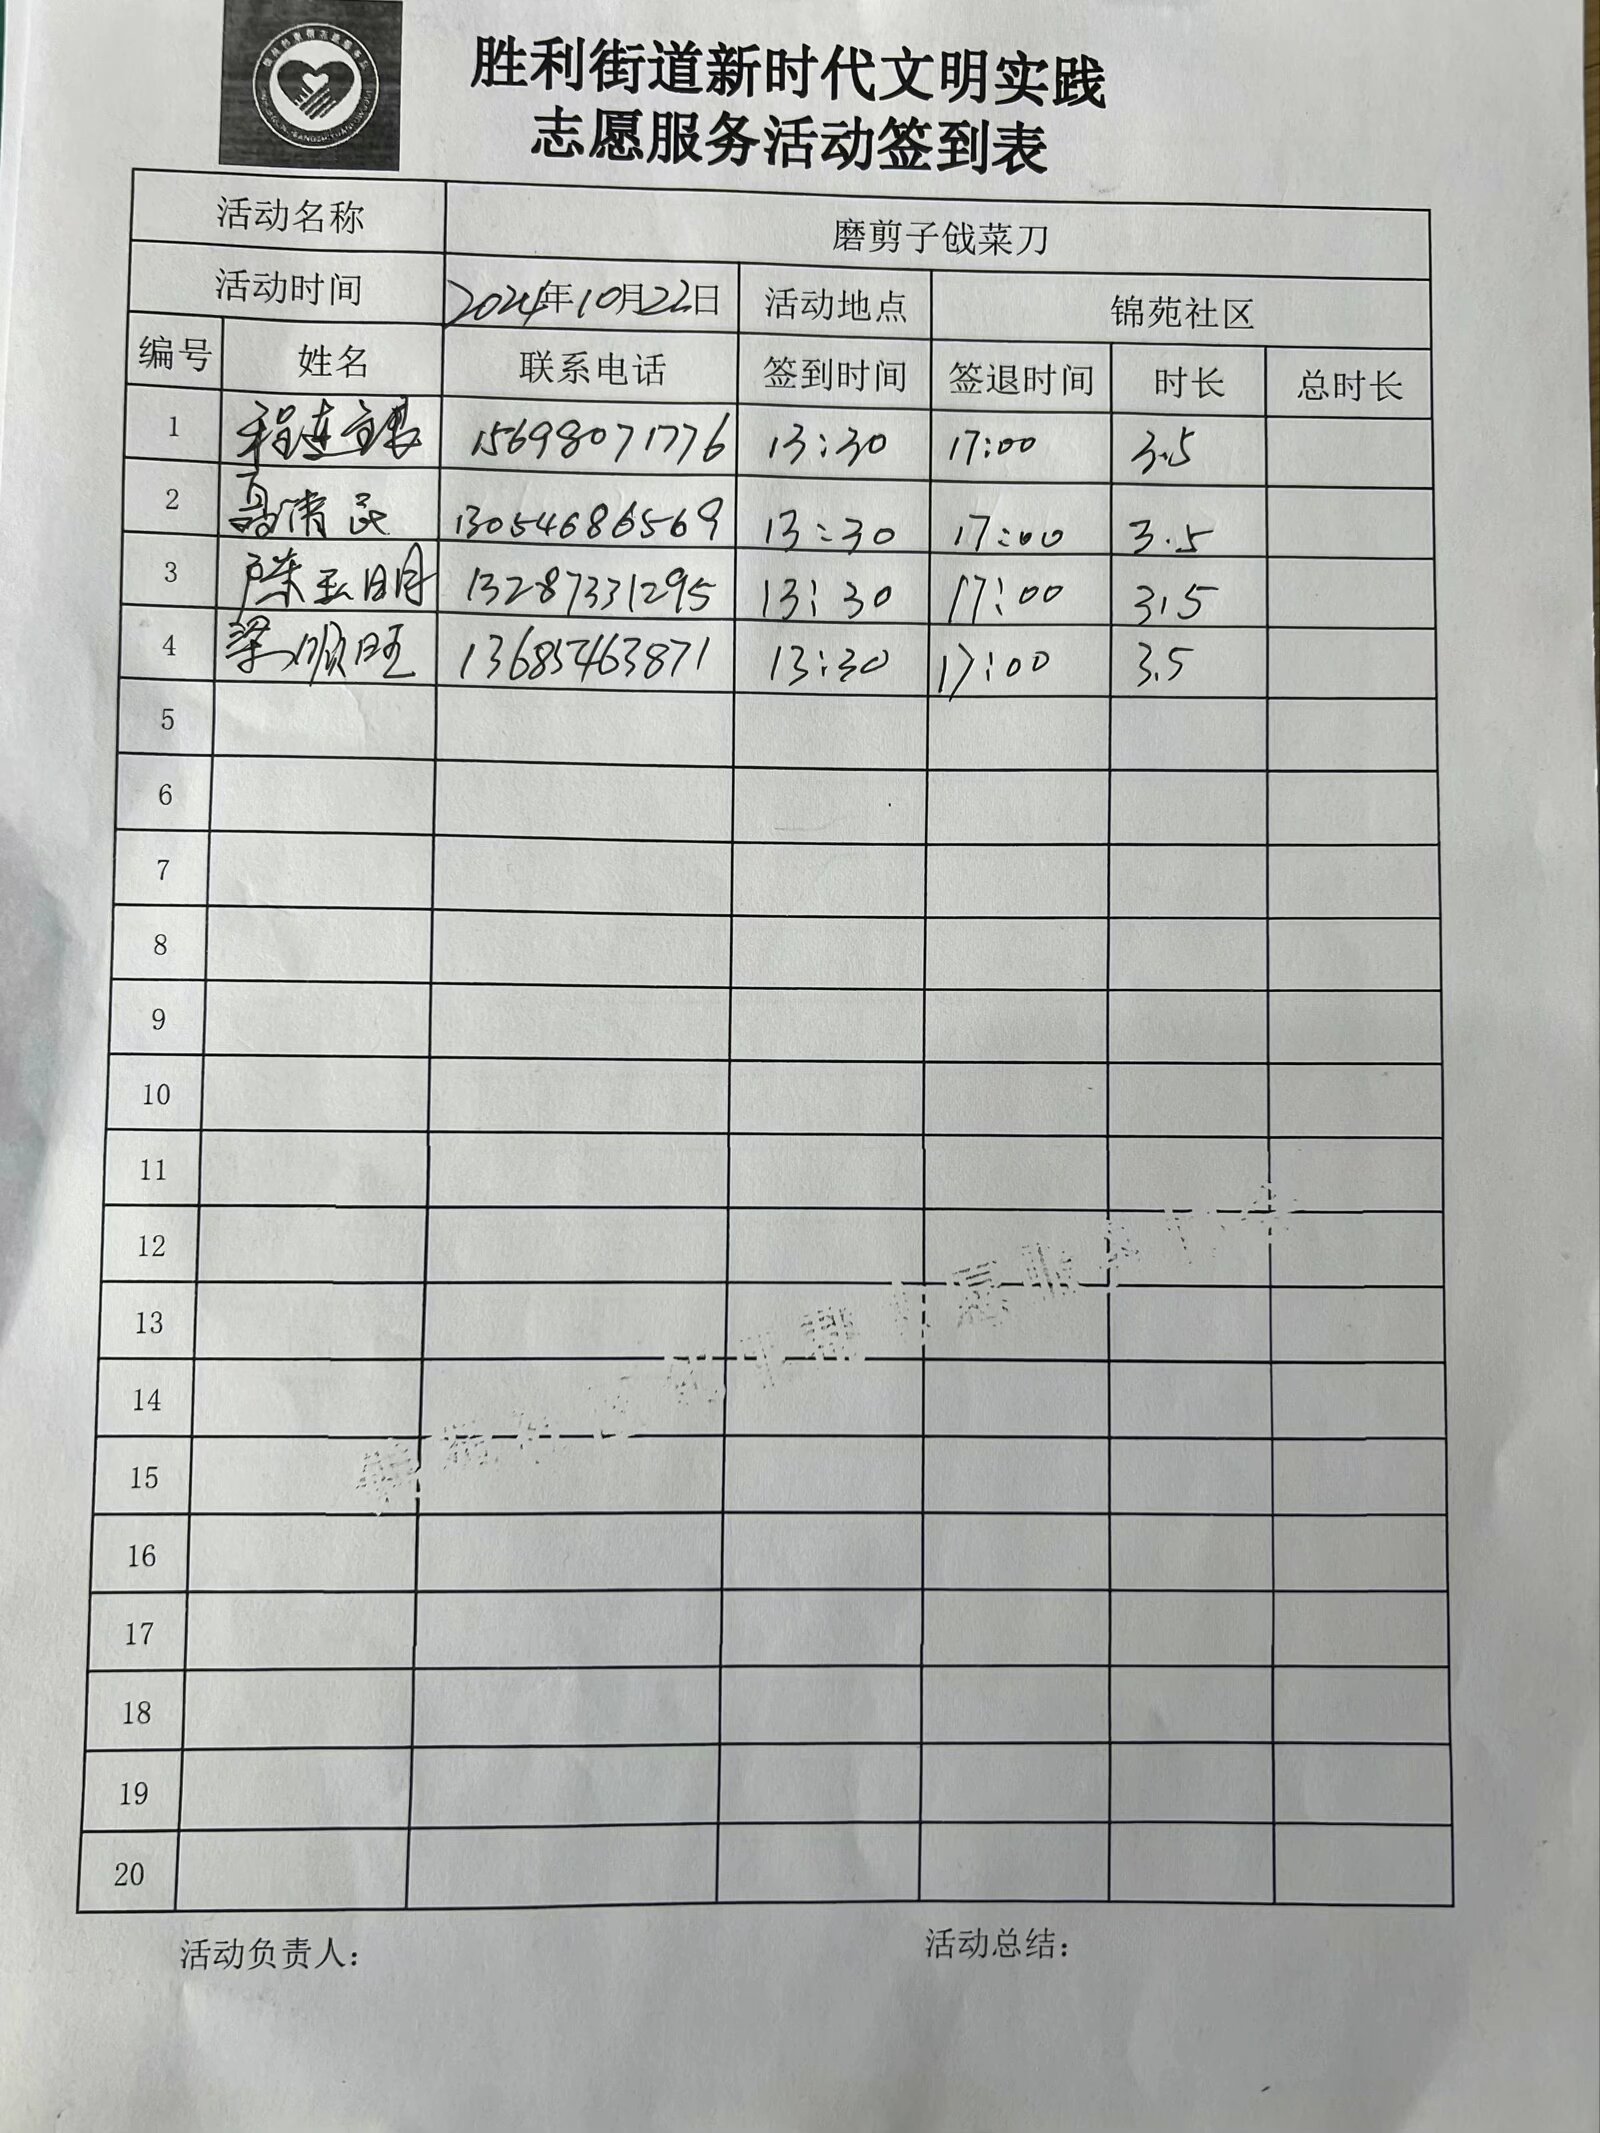 胜利街道新时代文明实践
志愿服务活动签到表
活动名称 磨剪子戗菜刀
活动时间 2024年10月22日 活动地点 锦苑社区
编号 姓名 联系电话 签到时间 签退时间 时长 总时长
1 程连 15698071776 13:30 17:00 3.5
2 清民 13054686569 13:30 17:00 3.5
3 陈玉明 13287331295 13:30 17:00 3.5
4 梁顺旺 13685463871 13:30 17:00 3.5
5
6
7
8
9
10
11
12
13
14
15
16
17
18
19
20
活动负责人: 活动总结: